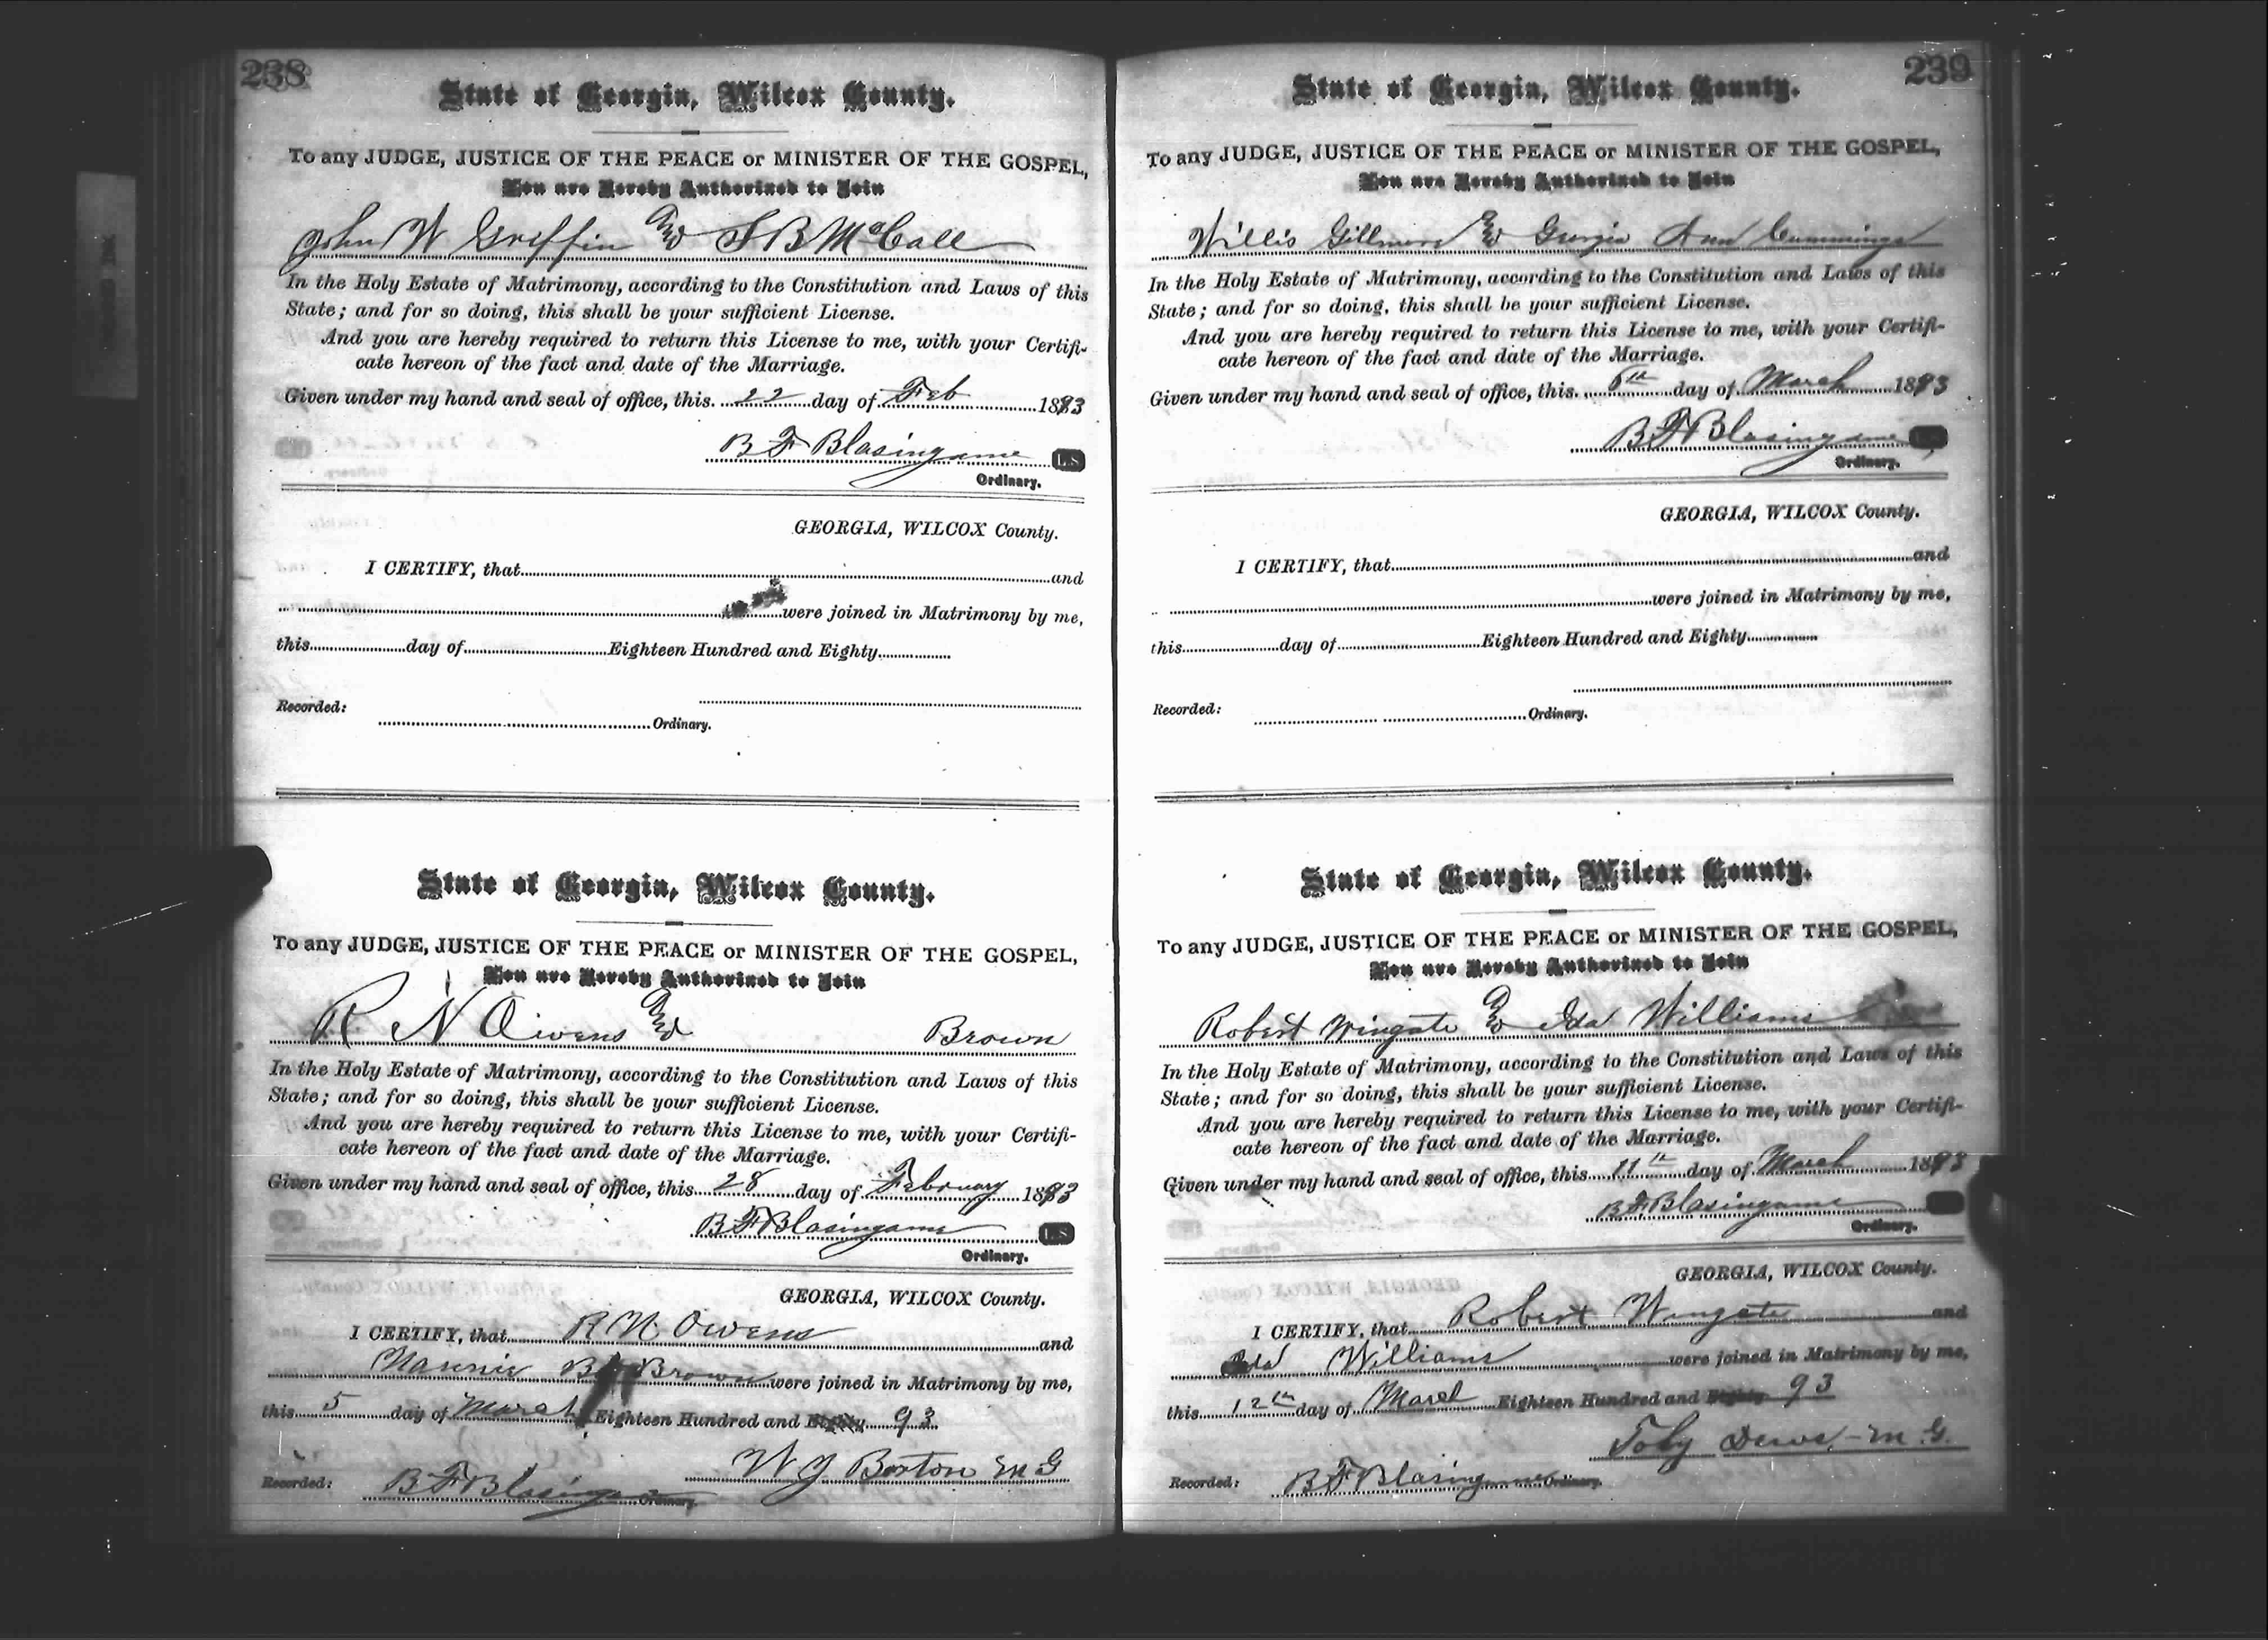 238
State of Georgia, Wilcox County.
To any JUDGE, JUSTICE OF THE PEACE or MINISTER OF THE GOSPEL,
You are Hereby Authorized to Join
John W Griffin and S B McCall
In the Holy Estate of Matrimony, according to the Constitution and Laws of this
State; and for so doing, this shall be your sufficient License.
And you are hereby required to return this License to me, with your Certifi-
cate hereon of the fact and date of the Marriage.
Given under my hand and seal of office, this 22 day of Feb 1893
B F Blasingame L.S
Ordinary.
GEORGIA, WILCOX County.
I CERTIFY, that and
were joined in Matrimony by me,
this day of Eighteen Hundred and Eighty
Recorded: Ordinary.
State of Georgia, Wilcox County.
To any JUDGE, JUSTICE OF THE PEACE or MINISTER OF THE GOSPEL,
You are Hereby Authorized to Join
R N Owens and Brown
In the Holy Estate of Matrimony, according to the Constitution and Laws of this
State; and for so doing, this shall be your sufficient License.
And you are hereby required to return this License to me, with your Certifi-
cate hereon of the fact and date of the Marriage.
Given under my hand and seal of office, this 28 day of February 1893
B F Blasingame L.S
Ordinary.
GEORGIA, WILCOX County.
I CERTIFY, that R N Owens and
B Brown were joined in Matrimony by me,
this 5 day of March Eighteen Hundred and Eighty 93
W J Borton M G
Recorded: B F Blasingame Ordinary.
239
State of Georgia, Wilcox County.
To any JUDGE, JUSTICE OF THE PEACE or MINISTER OF THE GOSPEL,
You are Hereby Authorized to Join
Willis Gillmore and Georgia Ann Cummings
In the Holy Estate of Matrimony, according to the Constitution and Laws of this
State; and for so doing, this shall be your sufficient License.
And you are hereby required to return this License to me, with your Certifi-
cate hereon of the fact and date of the Marriage.
Given under my hand and seal of office, this 6th day of March 1893
B F Blasingame
Ordinary.
GEORGIA, WILCOX County.
I CERTIFY, that and
were joined in Matrimony by me,
this day of Eighteen Hundred and Eighty
Recorded: Ordinary.
State of Georgia, Wilcox County.
To any JUDGE, JUSTICE OF THE PEACE or MINISTER OF THE GOSPEL,
You are Hereby Authorized to Join
Robert Wingate and Ida Williams
In the Holy Estate of Matrimony, according to the Constitution and Laws of this
State; and for so doing, this shall be your sufficient License.
And you are hereby required to return this License to me, with your Certifi-
cate hereon of the fact and date of the Marriage.
Given under my hand and seal of office, this 11th day of March 1893
B F Blasingame
Ordinary.
GEORGIA, WILCOX County.
I CERTIFY, that Robert Wingate and
Ida Williams were joined in Matrimony by me,
this 12th day of March Eighteen Hundred and Eighty 93
Toby Dews, - M. G.
Recorded: B F Blasingame Ordinary.